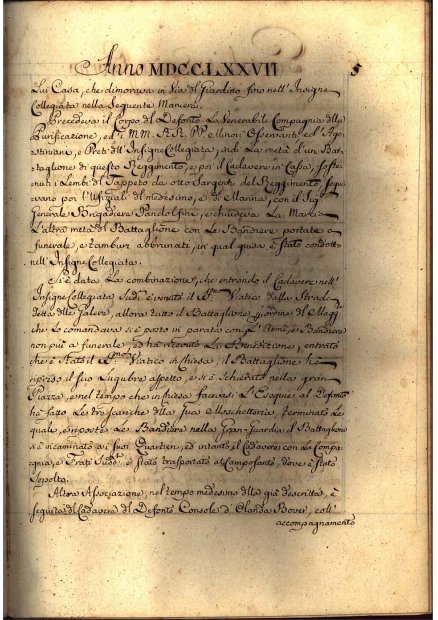 Anno MDCCLXXVII 5
Lui Casa, che dimorava in Via del Giardino fino nell'Insigne
Collegiata nella Seguente Maniera.
Precedeva il Corpo del Defonto La Venerabile Compagnia della
Purificazione, ed i M.M. R.R. PP. Minori Osservanti ed Ago-
stiniani, e Preti dell'Insigne Collegiata, indi La metà d'un Bat-
taglione di questo Reggimento, e poi il Cadavere in Cassa, soste-
nuti i Lembi del Tappeto da otto Sargenti del Reggimento, segui-
vano poi l'Ufizial del medesimo, e di Marina, con il Sig.
Generale Brigadiere Pandolfini, e chiudeva La Marcia
L'altra metà del Battaglione con Le Bandiere portate a
funerale, e tamburi abbrunati, in qual guisa è stato condotto
nell'Insigne Collegiata.
Si è data La combinazione, che entrando il Cadavere nell'
Insigne Collegiata Sud. è venuto il Viatico dalla Strada
detta delle Galere, allora tutto il Battaglione d'ordine del Magg.
che Lo comandava si è posto in parata con L'Armi, e Bandiere
non più a funerale, ed ha ricevuto La Benedizione, entrato
che è stato il Viatico in Chiesa, il Battaglione ha
ripreso il suo Lugubre aspetto, e si è Schierato nella gran
Piazza, e nel tempo che in Chiesa facevasi L'Esequie al Defonto
ha fatto Le tre scariche della sua Moschetteria, terminato Le
quale, e riposte Le Bandiere nella Gran-Guardia il Battaglione
si è incaminato ai suoi Quartieri, ed intanto il Cadavere con La Compa-
gnia, e Frati Sud. è stato trasportato al Camposanto, dove è stato
Sepolto.
Altra Associazione, nel tempo medesimo della già descritta, è
seguita del Cadavere del Defonto Console d'Olanda Bover, coll'
accompagnamento